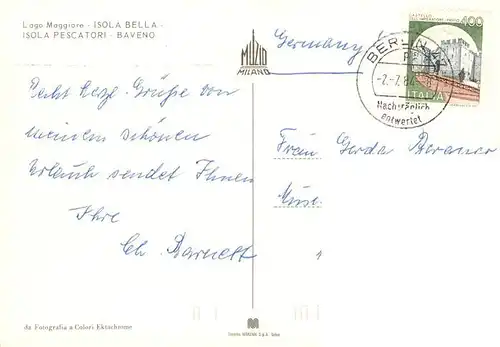 Lago Maggiore - ISOLA BELLA -
ISOLA PESCATORI - BAVENO
MUZIO
MILANO
Germany
CASTELLO
400
ITALIA
BERLIN
-7.-7.8
Nachträglich
entwertet
Recht herzl. Grüße von
meinem schönen
Urlaub sendet Ihnen
Ihre
Ch. Barnett
Frau Gerda
da Fotografia a Colori Ektachrome